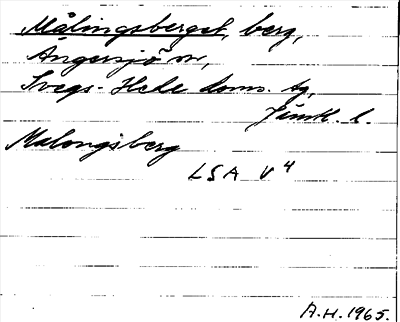 Målingsberget, berg,
Ängersjö sn,
Svegs-Hede doms. tg,
Jämtl. l.
Malongsberg
LSA V4
A.H. 1965.